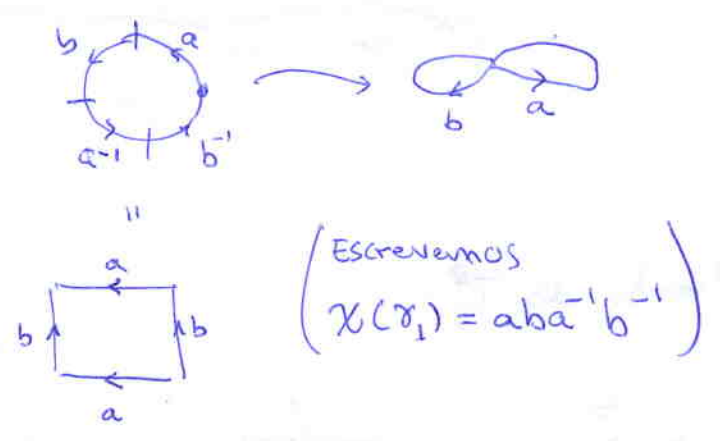 b a
a⁻¹ b⁻¹
b a
"
a
b b
a
(Escrevemos
χ(γ₁) = aba⁻¹b⁻¹)